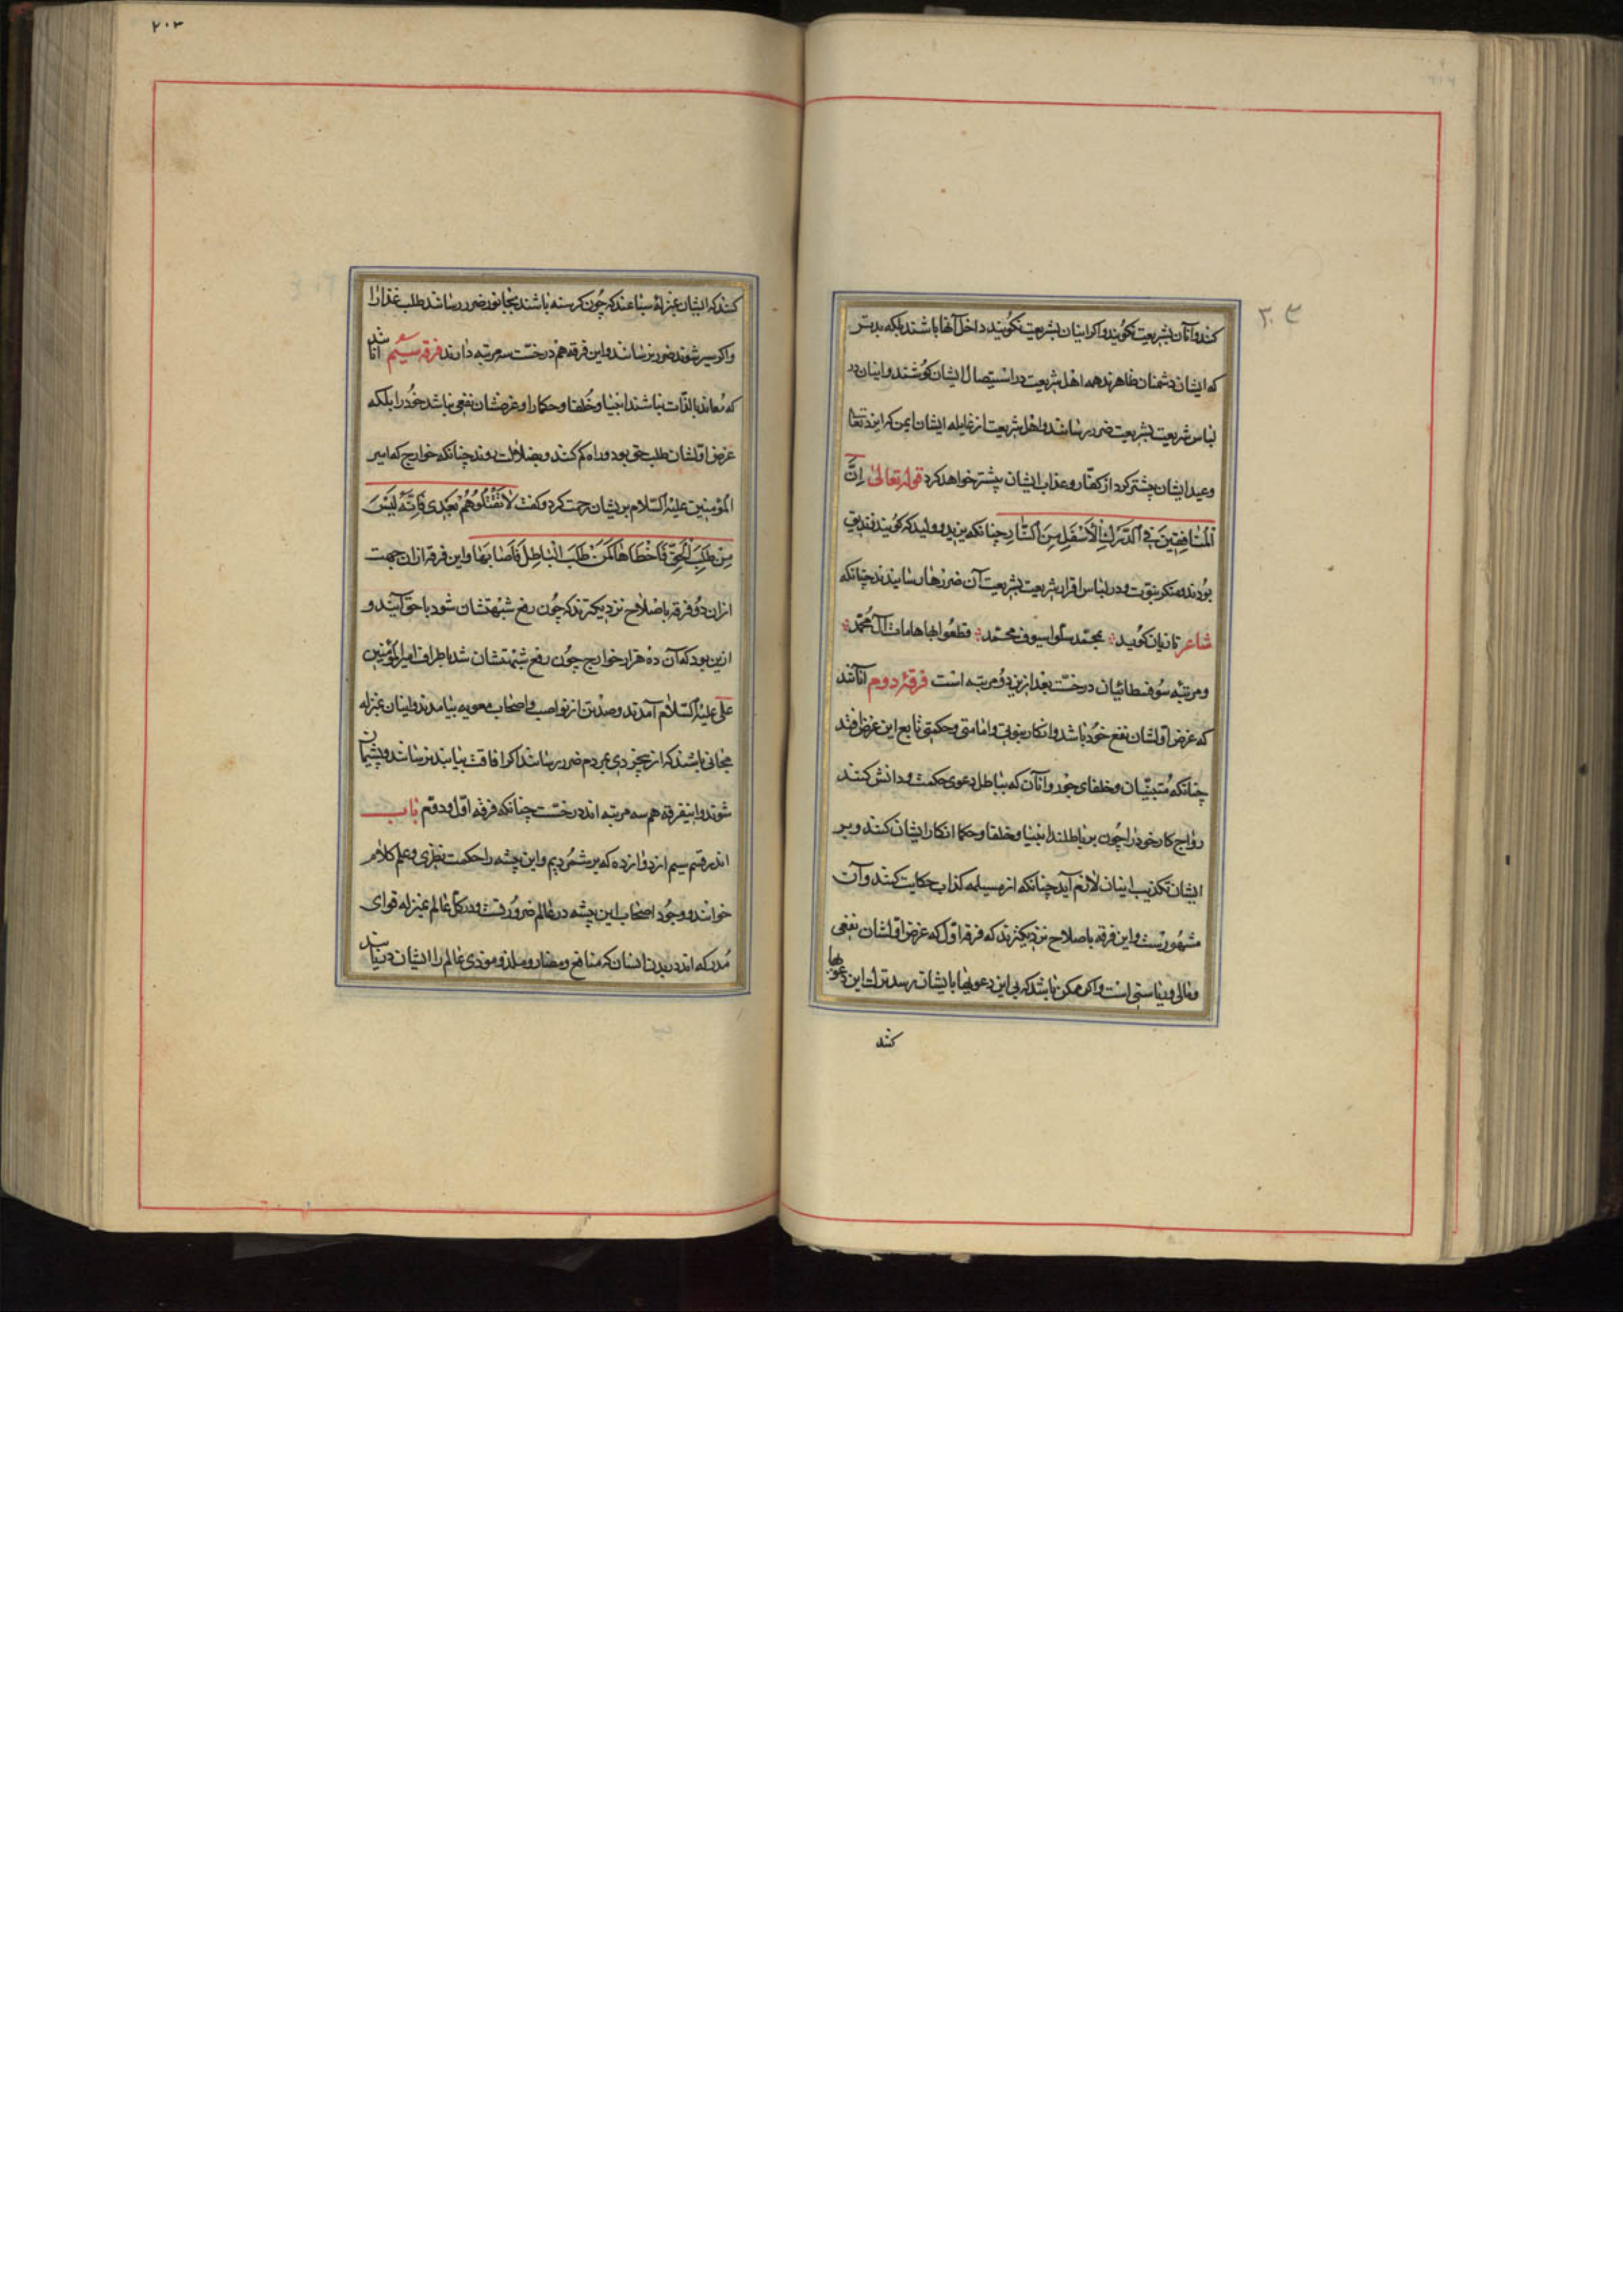 کنند و آنان بشریعت نگویند و اگر اینان بشریعت نگویند داخل آنها باشند بلکه بدتر
که ایشان دشمنان ظاهرند همه اهل شریعت در استیصال ایشان کوشند و اینان در
لباس شریعت بشریعت ضرر رسانند و اهل شریعت از غایله ایشان ایمن که ایزد تعالی
وعید ایشان بیشتر کرد از کفار و عذاب ایشان بیشتر خواهد کرد قوله تعالی إنَّ
المُنَافِقِینَ فی الدَّرَكِ الأَسْفَلِ مِنَ النَّارِ چنانکه یزید و ولید که گویند زندیق
بودند و منکر نبوت و در لباس اقرار بشریعت بشریعت آن ضررها رسانیدند چنانکه
شاعر تازیان گوید بمحمد سلوا سیوف محمد قطعوا بها هامات آل محمد
و مرتبه سوفسطائیان در خست بعد از یزید و مرتبه است فرقه دوم آنانند
که غرض اولشان نفع خود باشد و انکار نبوتی و امامتی و حکمتی تابع این غرض افتد
چنانکه متنبّیان و خلفای جور و آنان که بباطل دعوی حکمت و دانش کنند
رواج کار خود را چون بر باطلند انبیا و خلفا و حکما انکار ایشان کنند و بر
ایشان تکذیب اینان لازم آید چنانکه از مسیلمه کذاب حکایت کنند و آن
مشهورست و این فرقه باصلاح نزدیکترند که فرقه اول که غرض اولشان نفعی
و مالی و ریاستی است و اگر ممکن باشد که بی این دعویها بایشان رسد ترك این دعویها
کنند
۲۰۳
کنند که ایشان بمنزله سباعند که چون گرسنه باشند بجانور ضرر رسانند طلب غذا را
و اگر سیر شوند ضرر نرسانند و این فرقه هم در خست سه مرتبه دارند فرقه سیّم آنانند
که معاند بالذات نباشند انبیا و خلفا و حکما را و غرضشان نفعی نباشد خود را بلکه
غرض اولشان طلب حق بود و راه گم کنند و بضلالت روند چنانکه خوارج که امیر
المؤمنین علیه السلام بریشان رحمت کرد و گفت لَا تَقْتُلُوهُمْ بَعْدِی فَإِنَّهُ لَیْسَ
مَنْ طَلَبَ الْحَقَّ فَأَخْطَاهَا كَمَنْ طَلَبَ الْبَاطِلَ فَأَصَابَهَا و این فرقه از آن جهت
از آن دو فرقه باصلاح نزدیکترند که چون رفع شبهتشان شود با حق آیند و
ازین بود که آن ده هزار خوارج چون رفع شبهتشان شد باطراف امیر المؤمنین
علی علیه السلام آمدند و صد تن از نواصب و اصحاب معویه بنیامدند و اینان بمنزله
مجانی باشند که از بیخردی بمردم ضرر رسانند اگر افاقت بیابند نرسانند و پشیمان
شوند و اینفرقه هم سه مرتبه اند در خست چنانکه فرقه اول و دوم باب
اندر قسم سیم از دوازده که برشمردیم و این پیشه را حکمت نظری و علم کلام
خوانند و وجود اصحاب این پیشه در عالم ضرورتست و در کل عالم بمنزله قوای
مدرکه اند در بدن انسان که منافع و مضار و ملذ و موذی عالم را ایشان دریابند
۲۰۳